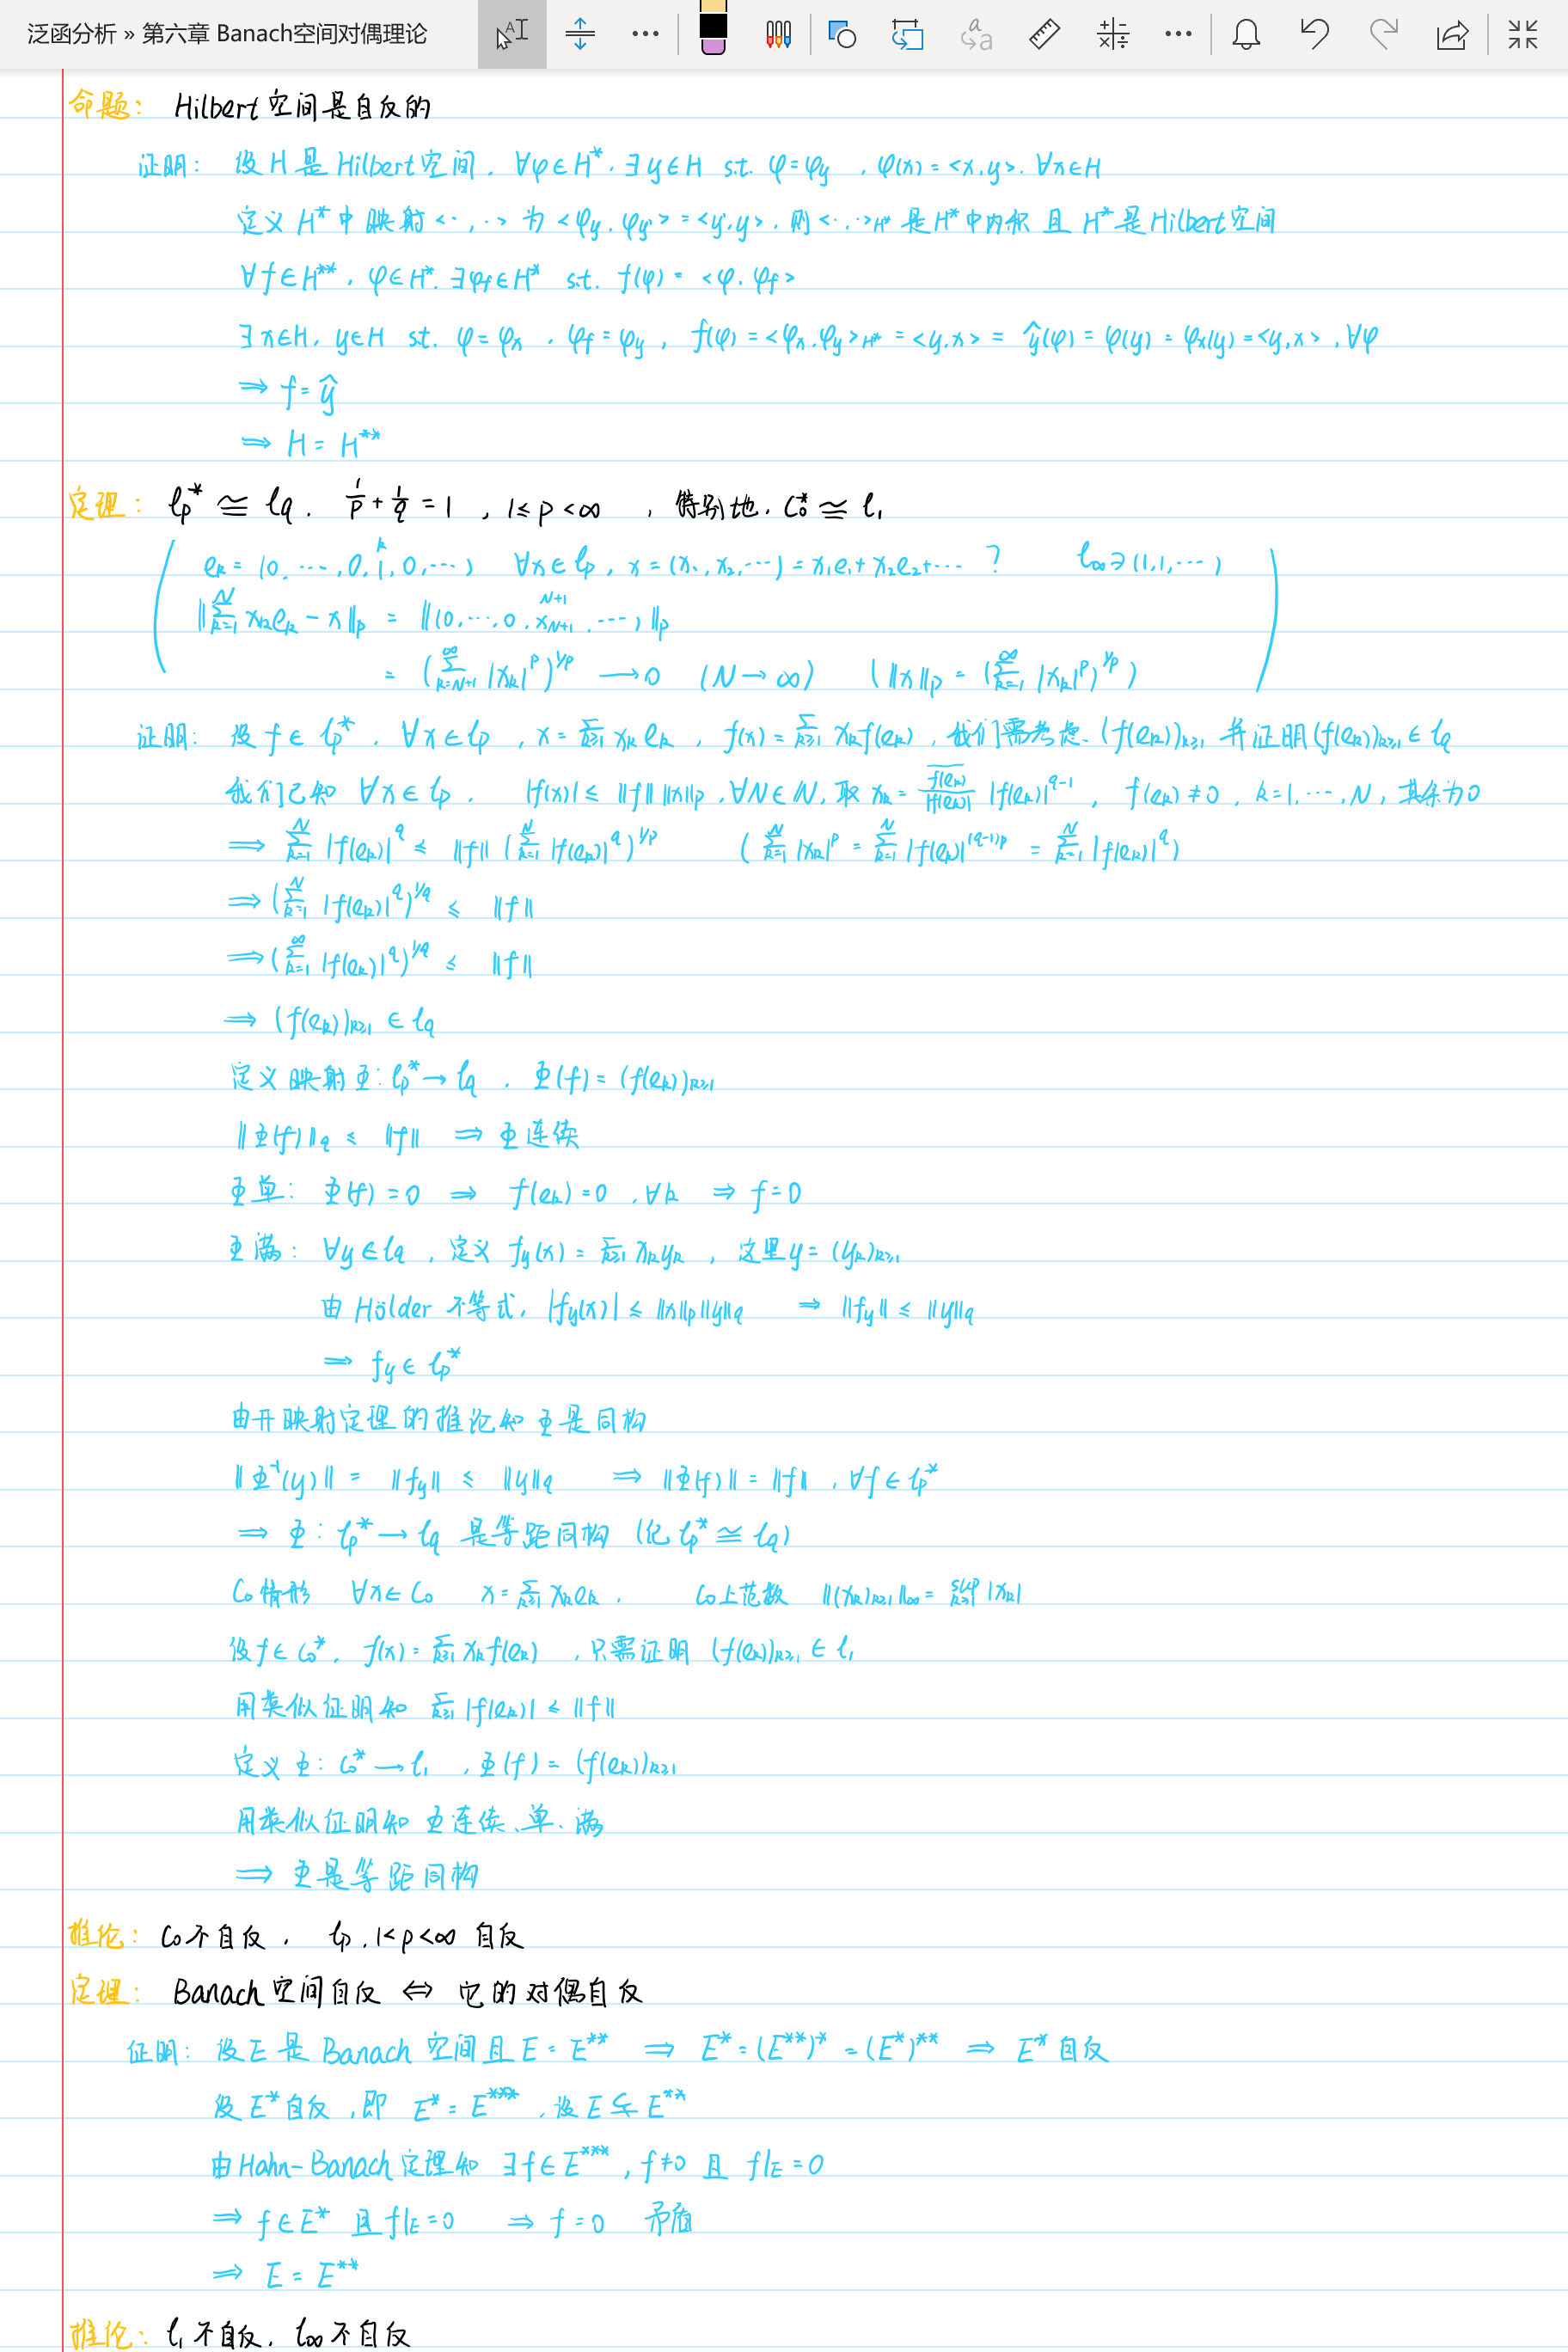 泛函分析 » 第六章 Banach空间对偶理论
命题: Hilbert空间是自反的
证明: 设H是Hilbert空间, ∀φ∈H*, ∃y∈H s.t. φ=φy, φ(x)=<x,y>, ∀x∈H
定义H*中映射<·,·>为<φy,φy'>=<y',y>, 则<·,·>H*是H*中内积且H*是Hilbert空间
∀f∈H**, φ∈H*, ∃φf∈H* s.t. f(φ)=<φ,φf>
∃x∈H, y∈H s.t. φ=φx, φf=φy, f(φ)=<φx,φy>H*=<y,x>=ŷ(φ)=φ(y)=φx(y)=<y,x>, ∀φ
⇒ f=ŷ
⇒ H=H**
定理: lp*≅lq, 1/p+1/q=1, 1≤p<∞, 特别地, C0*≅l1
ek=(0,…,0,1,0,…) k ∀x∈lp, x=(x1,x2,…)=x1e1+x2e2+… ? l∞∋(1,1,…)
‖∑_{k=1}^{N} xkek-x‖p = ‖(0,…,0,x_{N+1},…)‖p N+1
= (∑_{k=N+1}^{∞}|xk|^p)^{1/p} → 0 (N→∞) (‖x‖p=(∑_{k=1}^{∞}|xk|^p)^{1/p})
证明: 设f∈lp*, ∀x∈lp, x=∑_{k≥1}xkek, f(x)=∑_{k≥1}xkf(ek), 我们需考虑(f(ek))k≥1并证明(f(ek))k≥1∈lq
我们已知∀x∈lp, |f(x)|≤‖f‖‖x‖p, ∀N∈ℕ, 取xk=\overline{f(ek)}/|f(ek)| |f(ek)|^{q-1}, f(ek)≠0, k=1,…,N, 其余为0
⇒ ∑_{k=1}^{N}|f(ek)|^q ≤ ‖f‖(∑_{k=1}^{N}|f(ek)|^q)^{1/p} (∑_{k=1}^{N}|xk|^p=∑_{k=1}^{N}|f(ek)|^{(q-1)p}=∑_{k=1}^{N}|f(ek)|^q)
⇒ (∑_{k=1}^{N}|f(ek)|^q)^{1/q} ≤ ‖f‖
⇒ (∑_{k=1}^{∞}|f(ek)|^q)^{1/q} ≤ ‖f‖
⇒ (f(ek))k≥1∈lq
定义映射Φ: lp*→lq, Φ(f)=(f(ek))k≥1
‖Φ(f)‖q ≤ ‖f‖ ⇒ Φ连续
Φ单: Φ(f)=0 ⇒ f(ek)=0, ∀k ⇒ f=0
Φ满: ∀y∈lq, 定义fy(x)=∑_{k≥1}xkyk, 这里y=(yk)k≥1
由Hölder不等式, |fy(x)|≤‖x‖p‖y‖q ⇒ ‖fy‖≤‖y‖q
⇒ fy∈lp*
由开映射定理的推论知Φ是同构
‖Φ^{-1}(y)‖=‖fy‖≤‖y‖q ⇒ ‖Φ(f)‖=‖f‖, ∀f∈lp*
⇒ Φ: lp*→lq是等距同构 (记lp*≅lq)
C0情形 ∀x∈C0 x=∑_{k≥1}xkek, C0上范数 ‖(xk)k≥1‖∞=sup_{k≥1}|xk|
设f∈C0*, f(x)=∑_{k≥1}xkf(ek), 只需证明(f(ek))k≥1∈l1
用类似证明知 ∑_{k≥1}|f(ek)|≤‖f‖
定义Φ: C0*→l1, Φ(f)=(f(ek))k≥1
用类似证明知Φ连续、单、满
⇒ Φ是等距同构
推论: C0不自反, lp, 1<p<∞自反
定理: Banach空间自反 ⇔ 它的对偶自反
证明: 设E是Banach空间且E=E** ⇒ E*=(E**)*=(E*)** ⇒ E*自反
设E*自反, 即E*=E***, 设E⊊E**
由Hahn-Banach定理知 ∃f∈E***, f≠0且f|E=0
⇒ f∈E*且f|E=0 ⇒ f=0 矛盾
⇒ E=E**
推论: l1不自反, l∞不自反